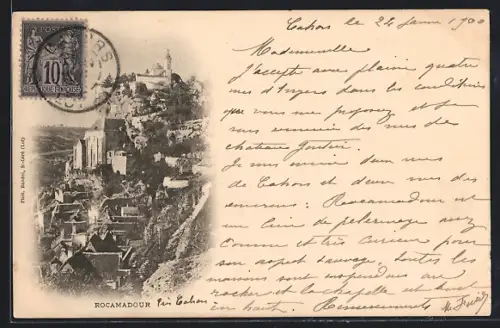 Cahors le 22 Janv 1900
Mademoiselle
J'accepte avec plaisir quatre
vues d'Angers dans les conditions
que vous me proposez et je
vous remercie des vues de
château Gontier.
Je vous envoie deux vues
de Cahors et deux vues des
environs: Rocamadour est
un lieu de pelerinage assez
connu et très curieux pour
son aspect sauvage. Toutes les
maisons sont suspendues au
rocher et la chapelle est tout
en haut. Remerciements
POSTES
10
REPUBLIQUE FRANÇAISE
CAHORS
LOT
Phot. Baudel, St-Céré (Lot)
ROCAMADOUR près Cahors